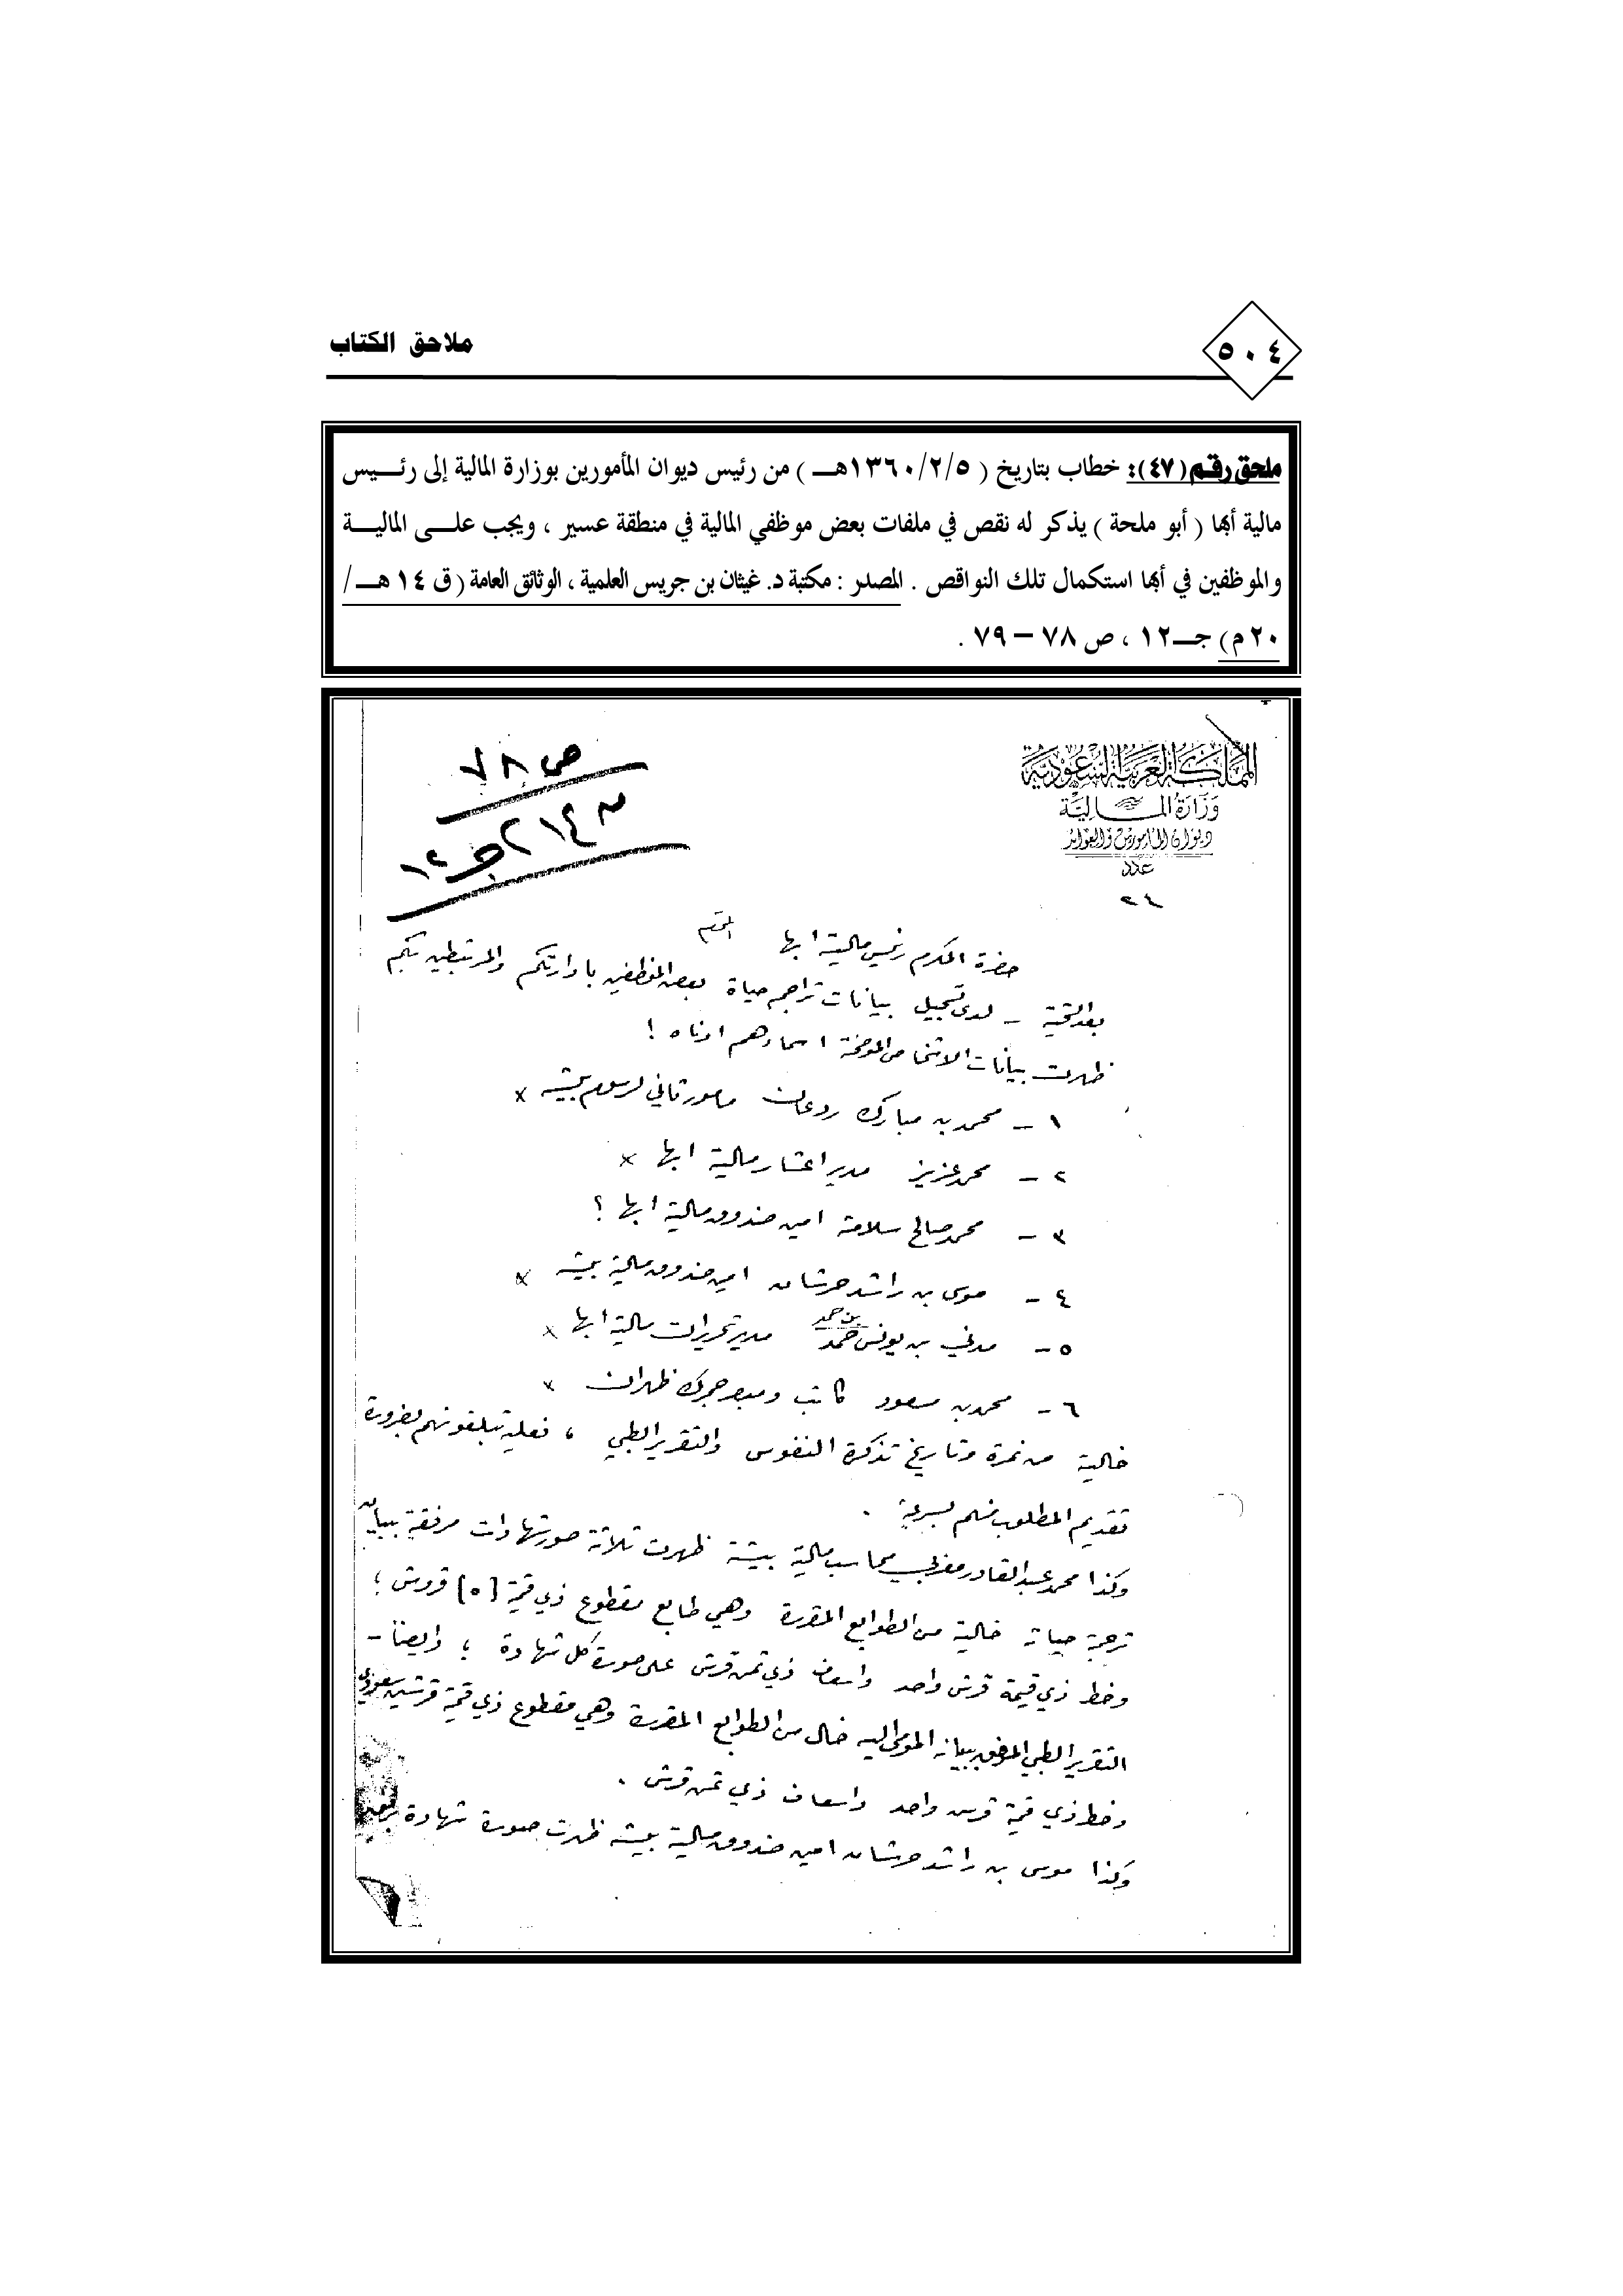 ٥٠٤
ملاحق الكتاب
ملحق رقم (٤٧): خطاب بتاريخ ( ١٣٦٠/٢/٥هـ ) من رئيس ديوان المأمورين بوزارة المالية إلى رئيس
مالية أبها ( أبو ملحة ) يذكر له نقص في ملفات بعض موظفي المالية في منطقة عسير ، ويجب على المالية
والموظفين في أبها استكمال تلك النواقص . المصدر : مكتبة د. غيثان بن جريس العلمية ، الوثائق العامة ( ق ١٤ هـ /
٢٠ م) جـ١٢ ، ص ٧٨ – ٧٩ .
ص ٧٨
جـ ١٢
المملكة العربية السعودية
وزارة المالية
ديوان المأمورين والعوائد
عدد
٢٤
حضرة المكرم رئيس مالية ابها المحترم
بعد التحية – لدى تسجيل بيانات تراجم حياة بعض الموظفين بادارتكم والمرتبطين بكم
ظهرت بيانات الاشخاص الموضحة اسماؤهم ادناه !
١ – محمد بن مبارك روعان مامور ثاني لرسوم بيشه ×
٢ – محمد عزيز مدير اعشار مالية ابها ×
٣ – محمد صالح سلامة امين صندوق مالية ابها ؟
٤ – موسى بن راشد حرشان امين صندوق مالية بيشه ×
٥ – مدني بن يونس حمد بن حمد مدير تحريرات مالية ابها ×
٦ – محمد بن مسعود كاتب ومبصر جمرك ظهران ×
خالية من نمرة وتاريخ تذكرة النفوس والتقرير الطبي ، فعليه تبلغونهم بضرورة
تقديم المطلوب منهم بسرعة .
وكذا محمد عبد القادر مغربي محاسب مالية بيشة ظهرت ثلاثة صور شهادات مرفقة ببيان
ترجمة حياته خالية من الطوابع المقررة وهي طابع مقطوع ذي قيمة [٥] قروش ؛
وخط ذي قيمة قرش واحد واسعاف ذي ثمن قرش على صورة كل شهادة ؛ وايضاً –
التقرير الطبي المرفق ببيانه المومى اليه خال من الطوابع المقررة وهي مقطوع ذي قيمة قرشين سعودي
وخط ذي قيمة قرش واحد واسعاف ذي ثمن قرش .
وكذا موسى بن راشد حرشان امين صندوق مالية بيشه ظهرت صورة شهادة